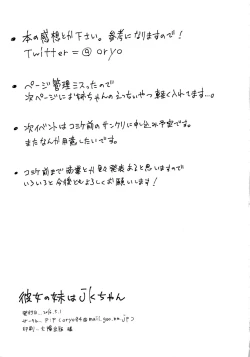 • 本の感想とか下さい。参考になりますので!
Twitter = @ oryo
• ページ管理ミスったので
次ページにお姉ちゃんのえっちいやつ軽く入れてます…。
• 次イベントはコミケ前のサンクリに申し込み予定です。
またなんか用意したいです。
• コミケ前まで商業とか色々発表あると思いますので
いろいろと今後ともよろしくお願いします!
彼女の妹はjkちゃん
発行日
サークル
印刷